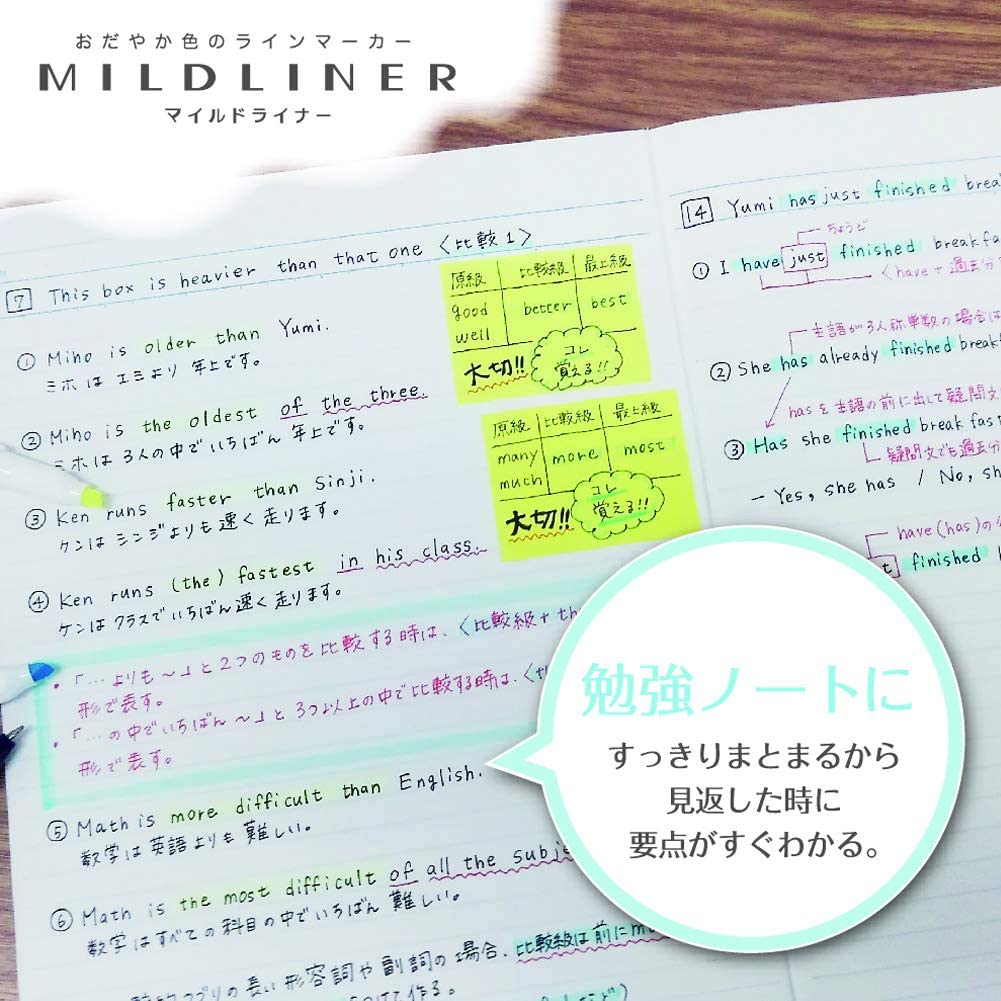 おだやか色のラインマーカー
MILDLINER
マイルドライナー
7 This box is heavier than that one 〈比較1〉
① Miho is older than Yumi.
ミホは エミより 年上です。
② Miho is the oldest of the three.
ミホは 3人の中でいちばん 年上です。
③ Ken runs faster than Sinji.
ケンは シンジよりも 速く 走ります。
④ Ken runs (the) fastest in his class.
ケンは クラスでいちばん 速く 走ります。
・「…よりも～」と2つのものを比較する時は、〈比較級+th
形で表す。
・「…の中でいちばん～」と3つ以上の中で比較する時は、〈th
形で表す。
⑤ Math is more difficult than English.
数学は英語よりも 難しい。
⑥ Math is the most difficult of all the subje
数学はすべての科目の中でいちばん 難しい。
の長い形容詞や副詞の場合、比較級は前にm
て作る。
原級 比較級 最上級
good better best
well
大切!! コレ
覚える!!
原級 比較級 最上級
many more most
much
大切!! コレ
覚える!!
14 Yumi has just finished brea
ちょうど
① I have just finished breakfa
〈have+過去分
主語が3人称単数の場合は
② She has already finished break
hasを主語の前に出して疑問文
③ Has she finished breakfast
疑問文でも過去分
- Yes, she has / No, sh
have(has)の
finished
勉強ノートに
すっきりまとまるから
見返した時に
要点がすぐわかる。